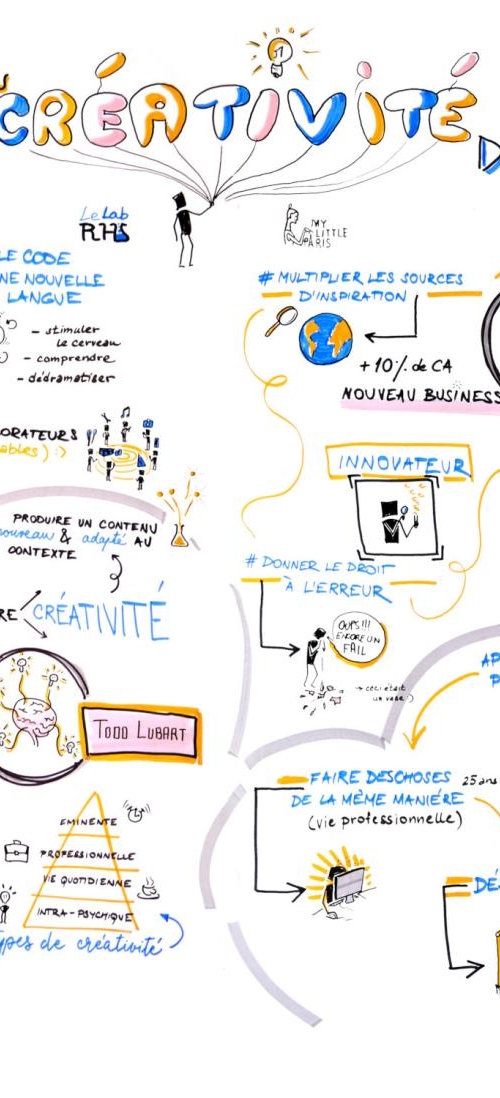 CRÉATIVITÉ
D
Le Lab
RHS
MY
LITTLE
PARIS
LE CODE
NE NOUVELLE
LANGUE
- stimuler
le cerveau
- comprendre
- dédramatiser
ORATEURS
ables) :)
PRODUIRE UN CONTENU
nouveau & adapté AU
CONTEXTE
RE
CRÉATIVITÉ
TODD LUBART
EMINENTE
PROFESSIONNELLE
VIE QUOTIDIENNE
INTRA-PSYCHIQUE
ypes de créativité
# MULTIPLIER LES SOURCES
D'INSPIRATION
+10% de CA
NOUVEAU BUSINESS
INNOVATEUR
# DONNER LE DROIT
À L'ERREUR
OUPS!!!
ENCORE UN
FAIL
→ ceci était
un vase :)
AP
P
FAIRE DES CHOSES 25 ans
DE LA MÊME MANIÉRE
(vie professionnelle)
DÉ